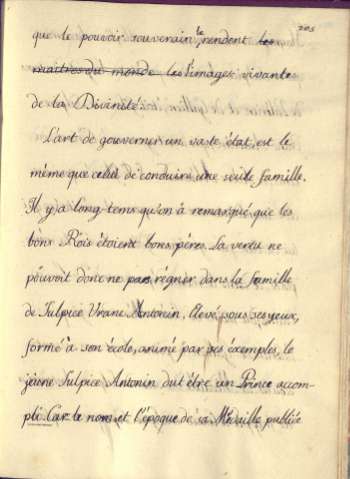 205
que le pouvoir souverain le rendent les
maitres du monde les images vivante
de la Divinité.
L'art de gouverner un vaste état, est le
même que celui de conduire une seule famille.
Il y a long tems qu'on à remarqué que les
bons Rois étoient bons pères. La vertu ne
pouvoit donc ne pas régner dans la famille
de Sulpice Urane Antonin. Elevé sous ses yeux,
formé à son école, animé par ses éxemples, le
jeûne Sulpice Antonin dut être un Prince accom-
pli. Car le nom et l'époque de sa Médaille publiée